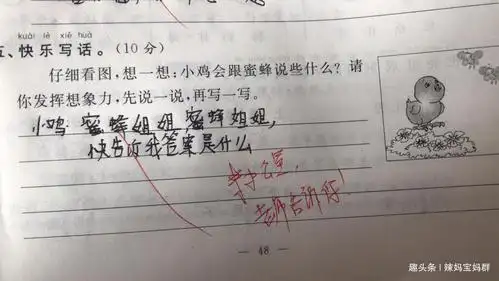 kuài lè xiě huà
五、快乐写话。(10 分)
仔细看图,想一想:小鸡会跟蜜蜂说些什么?请
你发挥想象力,先说一说,再写一写。
小鸡 蜜蜂姐姐,蜜蜂姐姐,
快告诉我答案是什么
老师告诉你!
— 48 —
趣头条 | 辣妈宝妈群